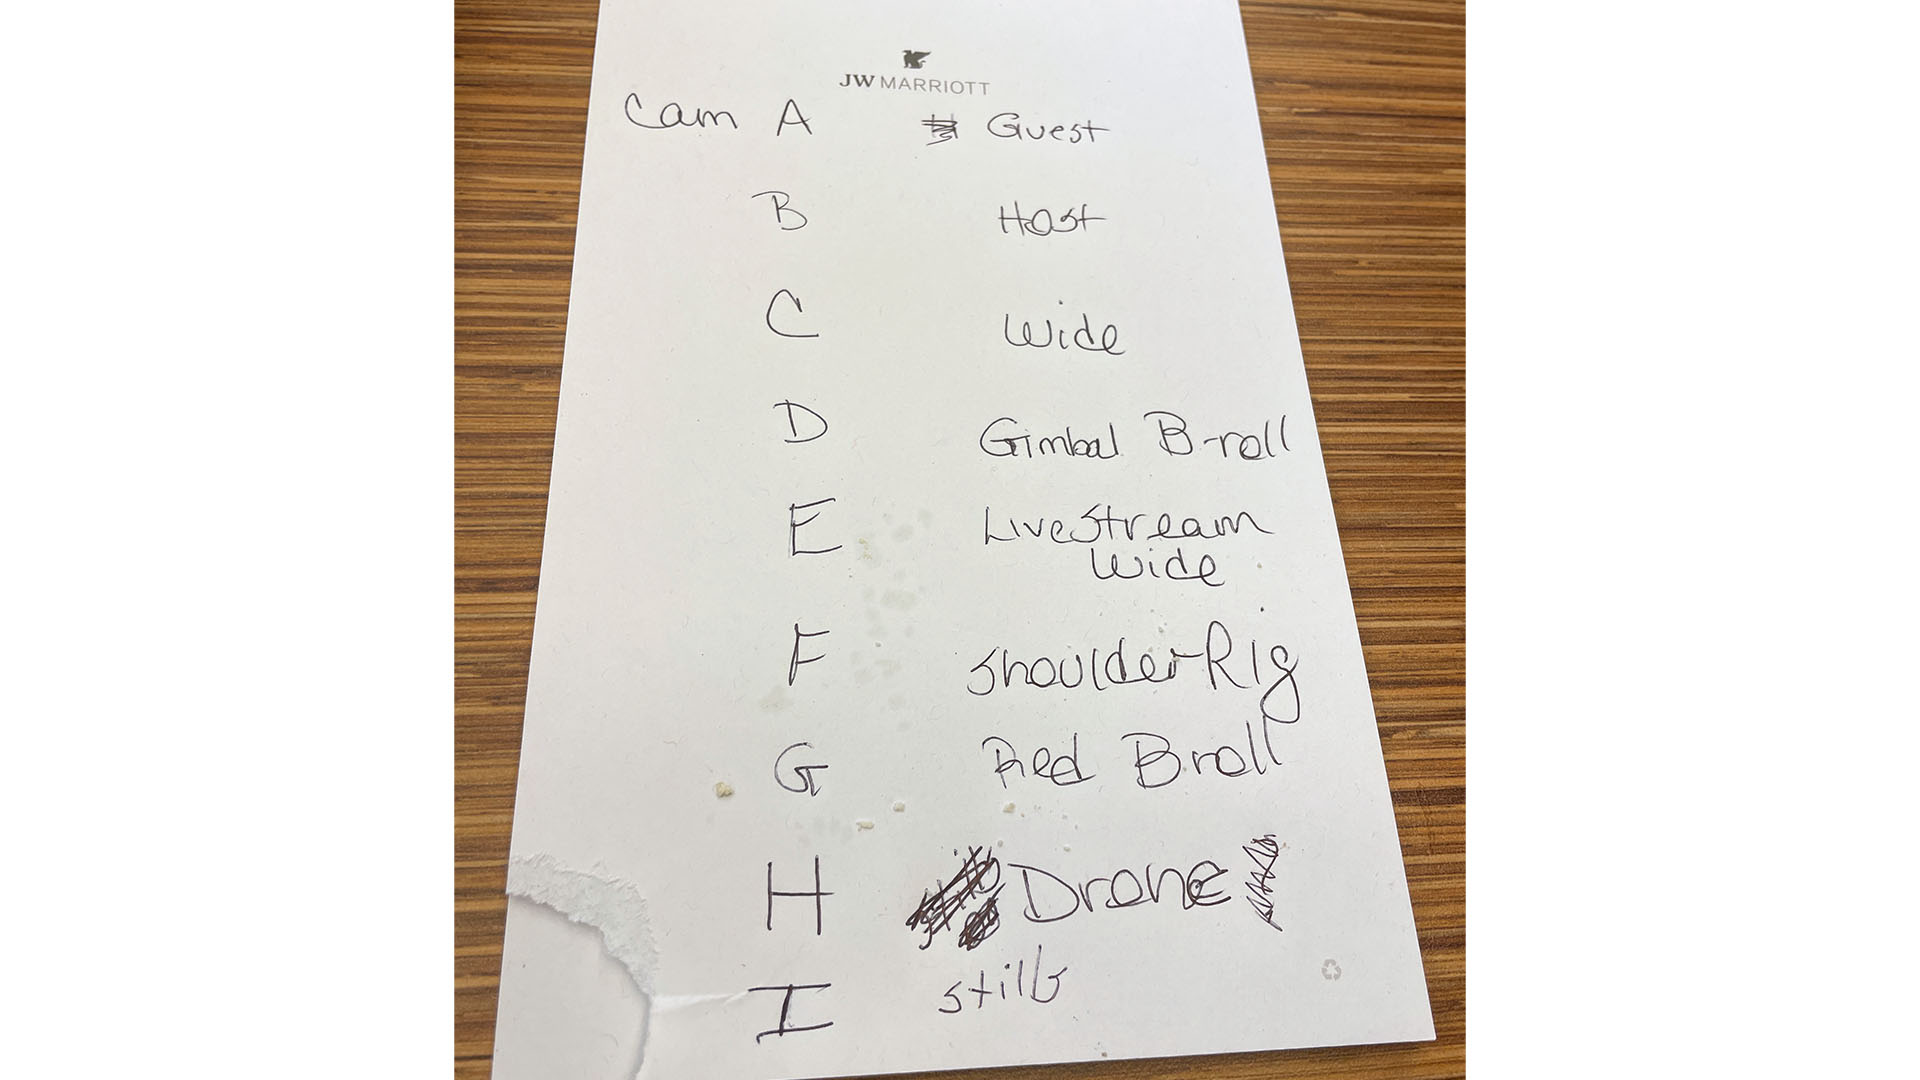 JW MARRIOTT
Cam A Guest
B Host
C Wide
D Gimbal B-roll
E LiveStream
Wide
F Shoulder Rig
G Red Broll
H Drone
I stills